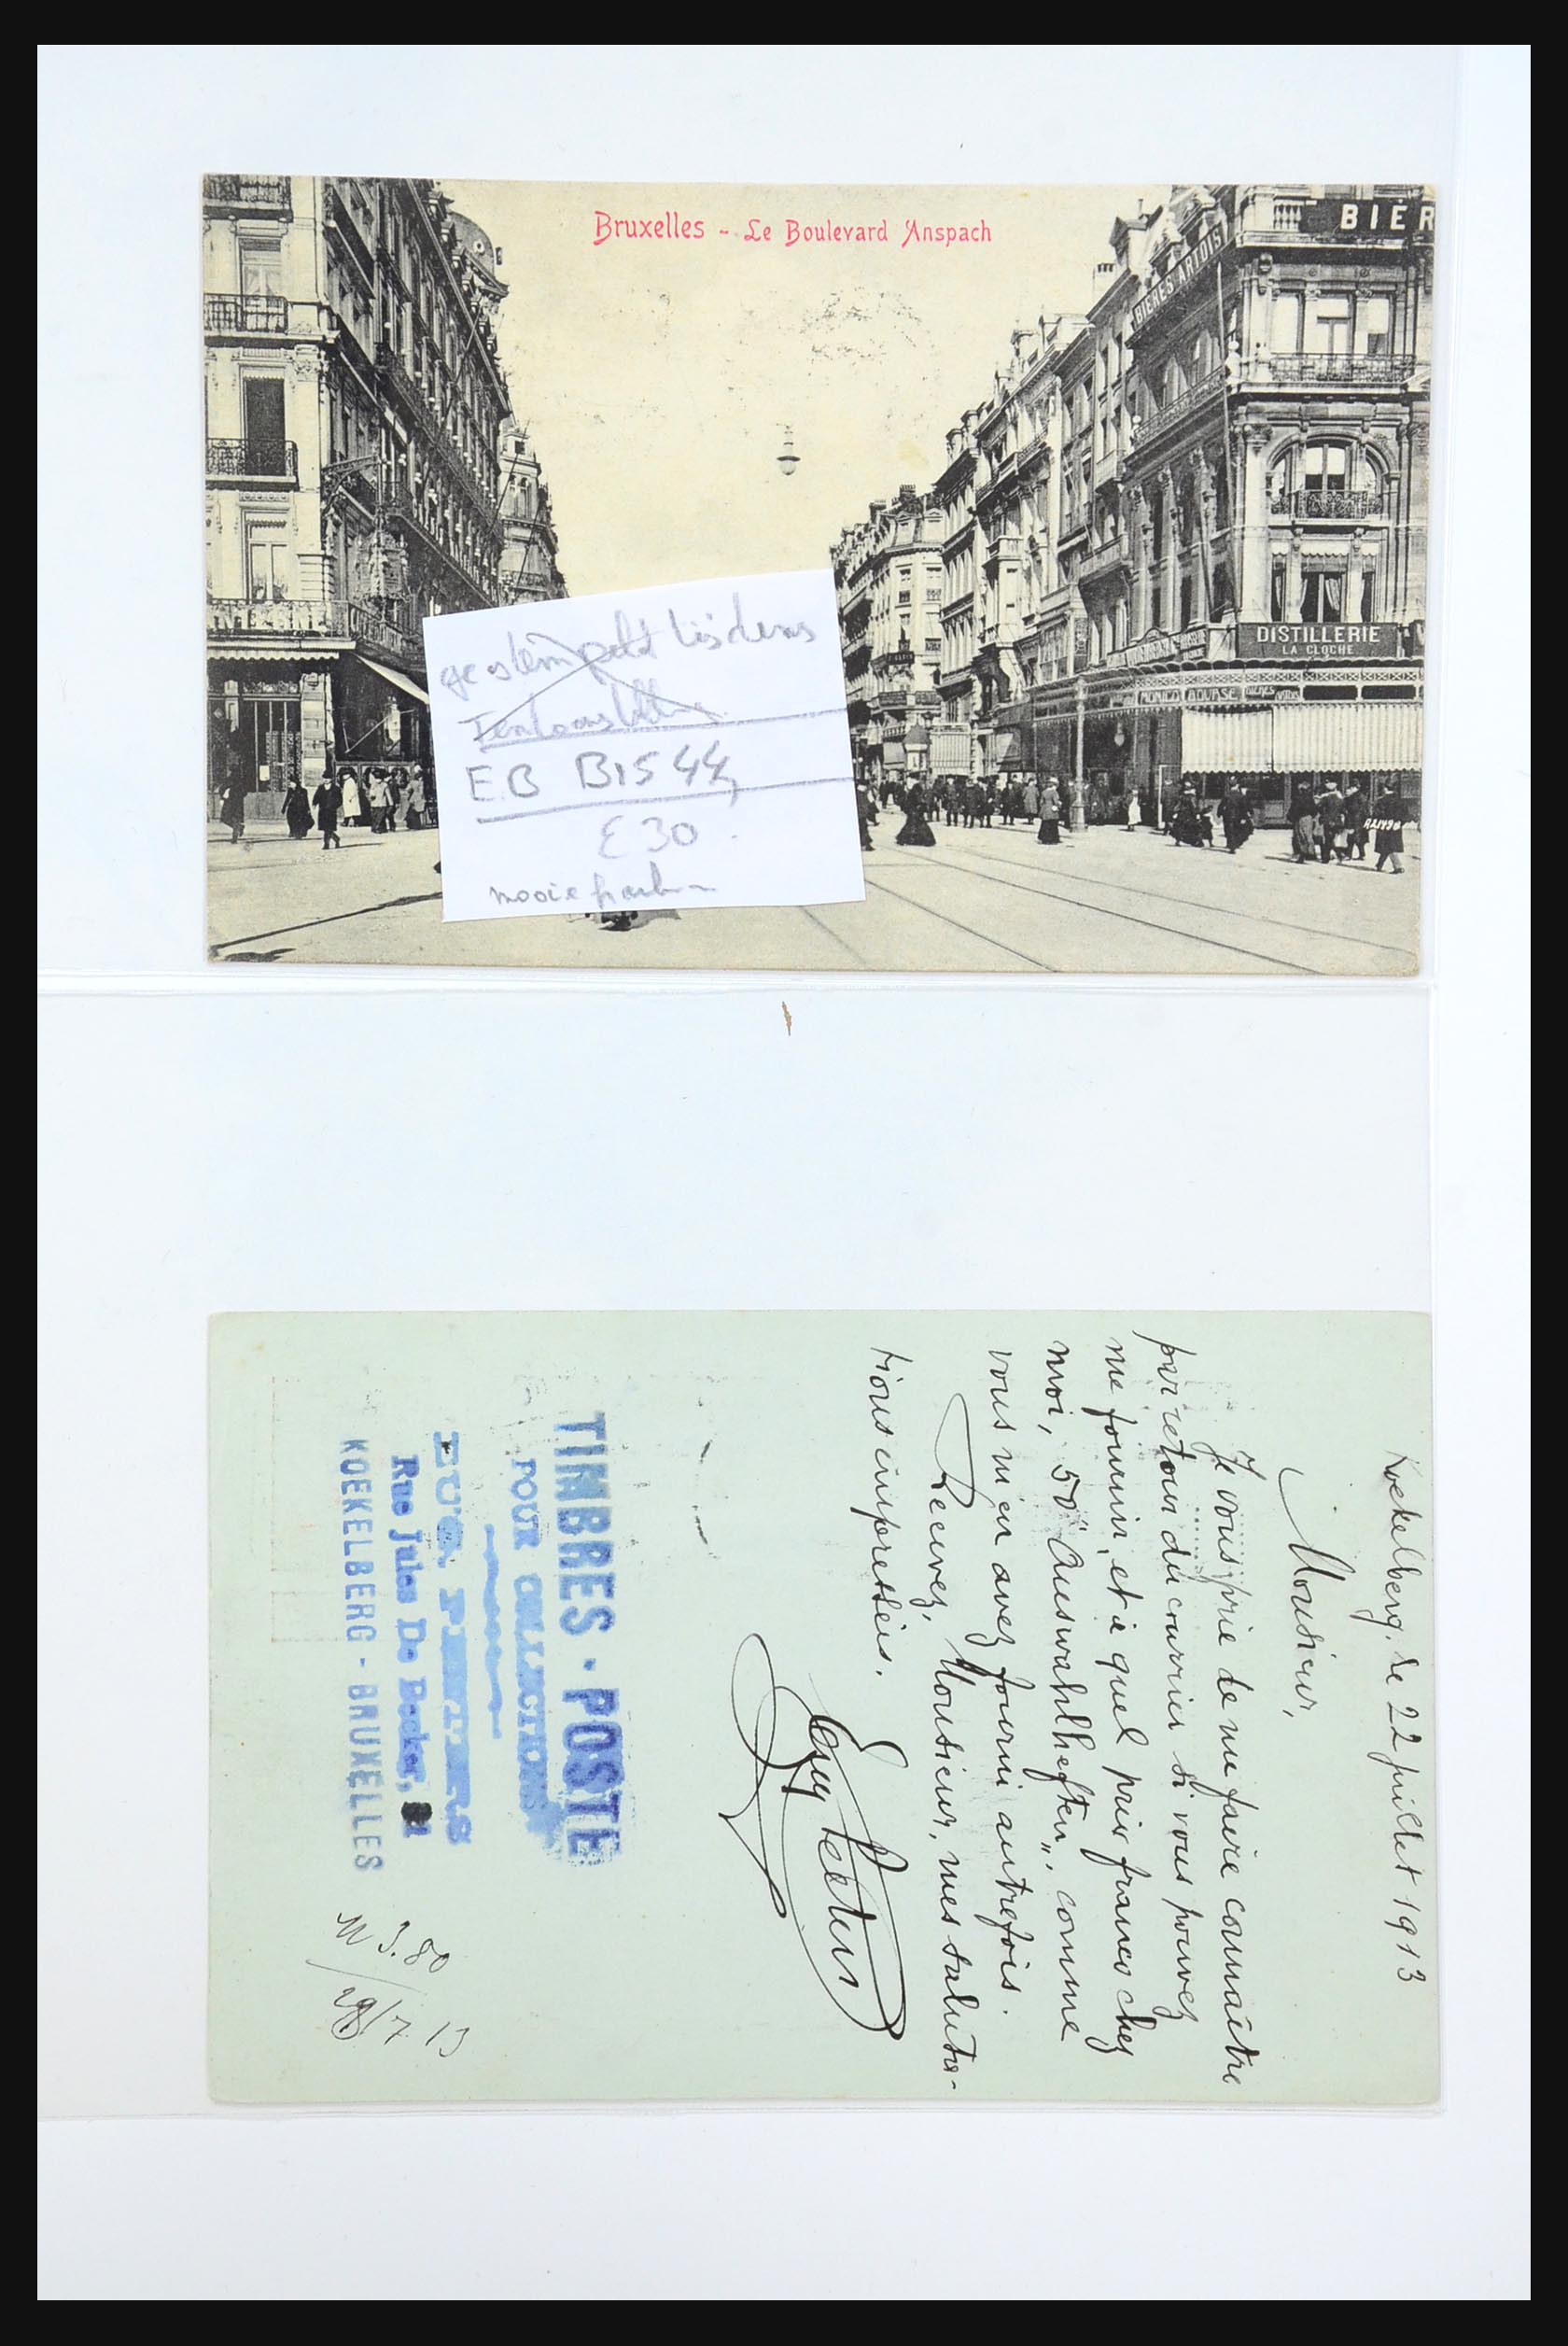 Bruxelles - Le Boulevard Anspach
BIÈR
BIÈRES ARTOIS
DISTILLERIE
LA CLOCHE
MONICO BOURSE
gestempeld tijdens
EB B1544
£30
mooie
Koekelberg, le 22 juillet 1913
Monsieur,
Je vous prie de me faire connaître
par retour du courrier si vous pouvez
me fournir, et à quel prix franco chez
moi, 50 "Auswahlheften", comme
vous m'en avez fourni autrefois.
Recevez, Monsieur, mes saluta-
tions empressées.
Eug Peeters
TIMBRES - POSTE
POUR COLLECTIONS
EUG. PEETERS
Rue Jules De Becker,
KOEKELBERG - BRUXELLES
M 3.80
29/7 13